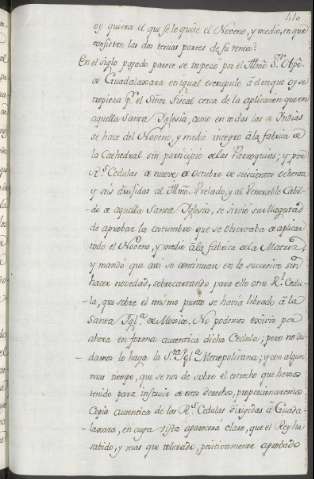 110
oy quiera el que se le quite el Noveno, y medio, en que
consisten las dos tercias partes de su renta?
En el siglo pasado parece se tropezò por el Illmo. Sr. Obpo. de
Guadalaxara en igual escrupulo à el en que oy se
tropieza pr. el Señor Fiscal cerca de la aplicacion que en
aquella Santa Iglesia, como en todas las de Indias
se hace del Noveno, y medio integro à la fabrica de
la Cathedral sin participio de las Parroquias; y por
Rs. Cedulas de nueve de Octubre de seiscientos ochenta,
y sus dirigidas al Illmo. Prelado, y al Venerable Cabil-
do de aquella Santa Iglesia, se sirviò su Magestad
de aprobar la costumbre que se observaba de aplicar
todo el Noveno, y medio à la fabrica de la Matriz,
y mandò que asi se continuase en lo succesivo sin
hacer novedad, sobrecartando para ello otra Rl. Cedu-
-la, que sobre el mismo punto se havia librado à la
Santa Iglª. de Mexico. No podemos exivir por
ahora en forma autentica dicha Cedula; pero no du-
damos lo haga la Sta. Iglª. Metropolitana; y con algun
mas tiempo, que se nos dè sobre el estrecho que hemos
tenido para instruir de otros derechos, proporcionaremos
Copia autentica de las Rs. Cedulas dirigidas à Guada-
laxara, en cuya vista parecerà claro, que el Rey ha
sabido, y mas que tolerado, positivamente aprobado